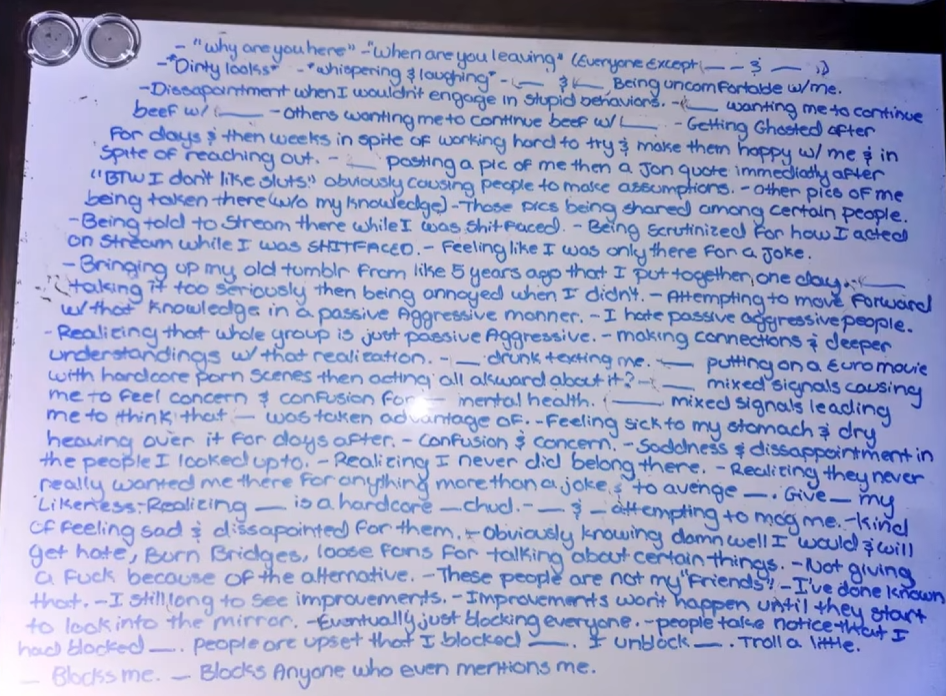 - "why are you here" - "when are you leaving" (Everyone Except __ - - & __ ))
- *Dirty looks* - *whispering & laughing* - __ & __ Being uncomfortable w/me.
- Dissapointment when I wouldn't engage in stupid behaviors. - __ wanting me to continue
beef w/ __ - Others wanting me to continue beef w/ __ - Getting Ghosted after
For days & then weeks in spite of working hard to try & make them happy w/ me & in
Spite of reaching out. - __ posting a pic of me then a Jon quote immediatly after
"BTW I don't like sluts." obviously causing people to make assumptions. - other pics of me
being taken there (w/o my knowledge) - Those pics being shared among certain people.
- Being told to Stream there while I was Shitfaced. - Being Scrutinized for how I acted
on Stream while I was SHITFACED. - Feeling like I was only there for a Joke.
- Bringing up my old tumblr from like 5 years ago that I put together, one day. __
talking it too seriously then being annoyed when I didn't. - Attempting to move Forward
w/ that knowledge in a passive Aggressive manner. - I hate passive aggressive people.
- Realizing that whole group is just passive Aggressive. - making connections & deeper
understandings w/ that realization. - __ drunk texting me. __ putting on a Euro movie
with hardcore porn scenes then acting all akward about it? - __ mixed signals causing
me to feel concern & confusion for __ mental health. __ mixed signals leading
me to think that __ was taken advantage of. - Feeling sick to my stomach & dry
heaving over it for days after. - Confusion & concern. - Saddness & dissapointment in
the people I looked up to. - Realizing I never did belong there. - Realizing they never
really wanted me there for anything more than a joke & to avenge __. Give __ my
Likeness. - Realizing __ is a hardcore __ chud. - __ & __ attempting to mog me. - Kind
of feeling sad & dissapointed for them. - Obviously knowing damn well I would & will
get hate, Burn Bridges, loose fans for talking about certain things. - Not giving
a fuck because of the alternative. - These people are not my "Friends"! - I've done known
that. - I still long to see improvements. - Improvements won't happen until they start
to look into the mirror. - Eventually just blocking everyone. - people take notice that I
had blocked __. People are upset that I blocked __. I unblock __. Troll a little.
__ Blocks me. __ Blocks Anyone who even mentions me.